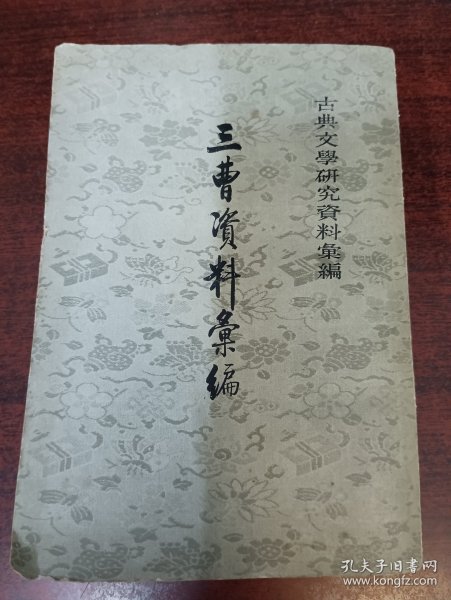 古典文學研究資料彙編
三曹資料彙編
孔夫子旧书网
www.kongfz.com